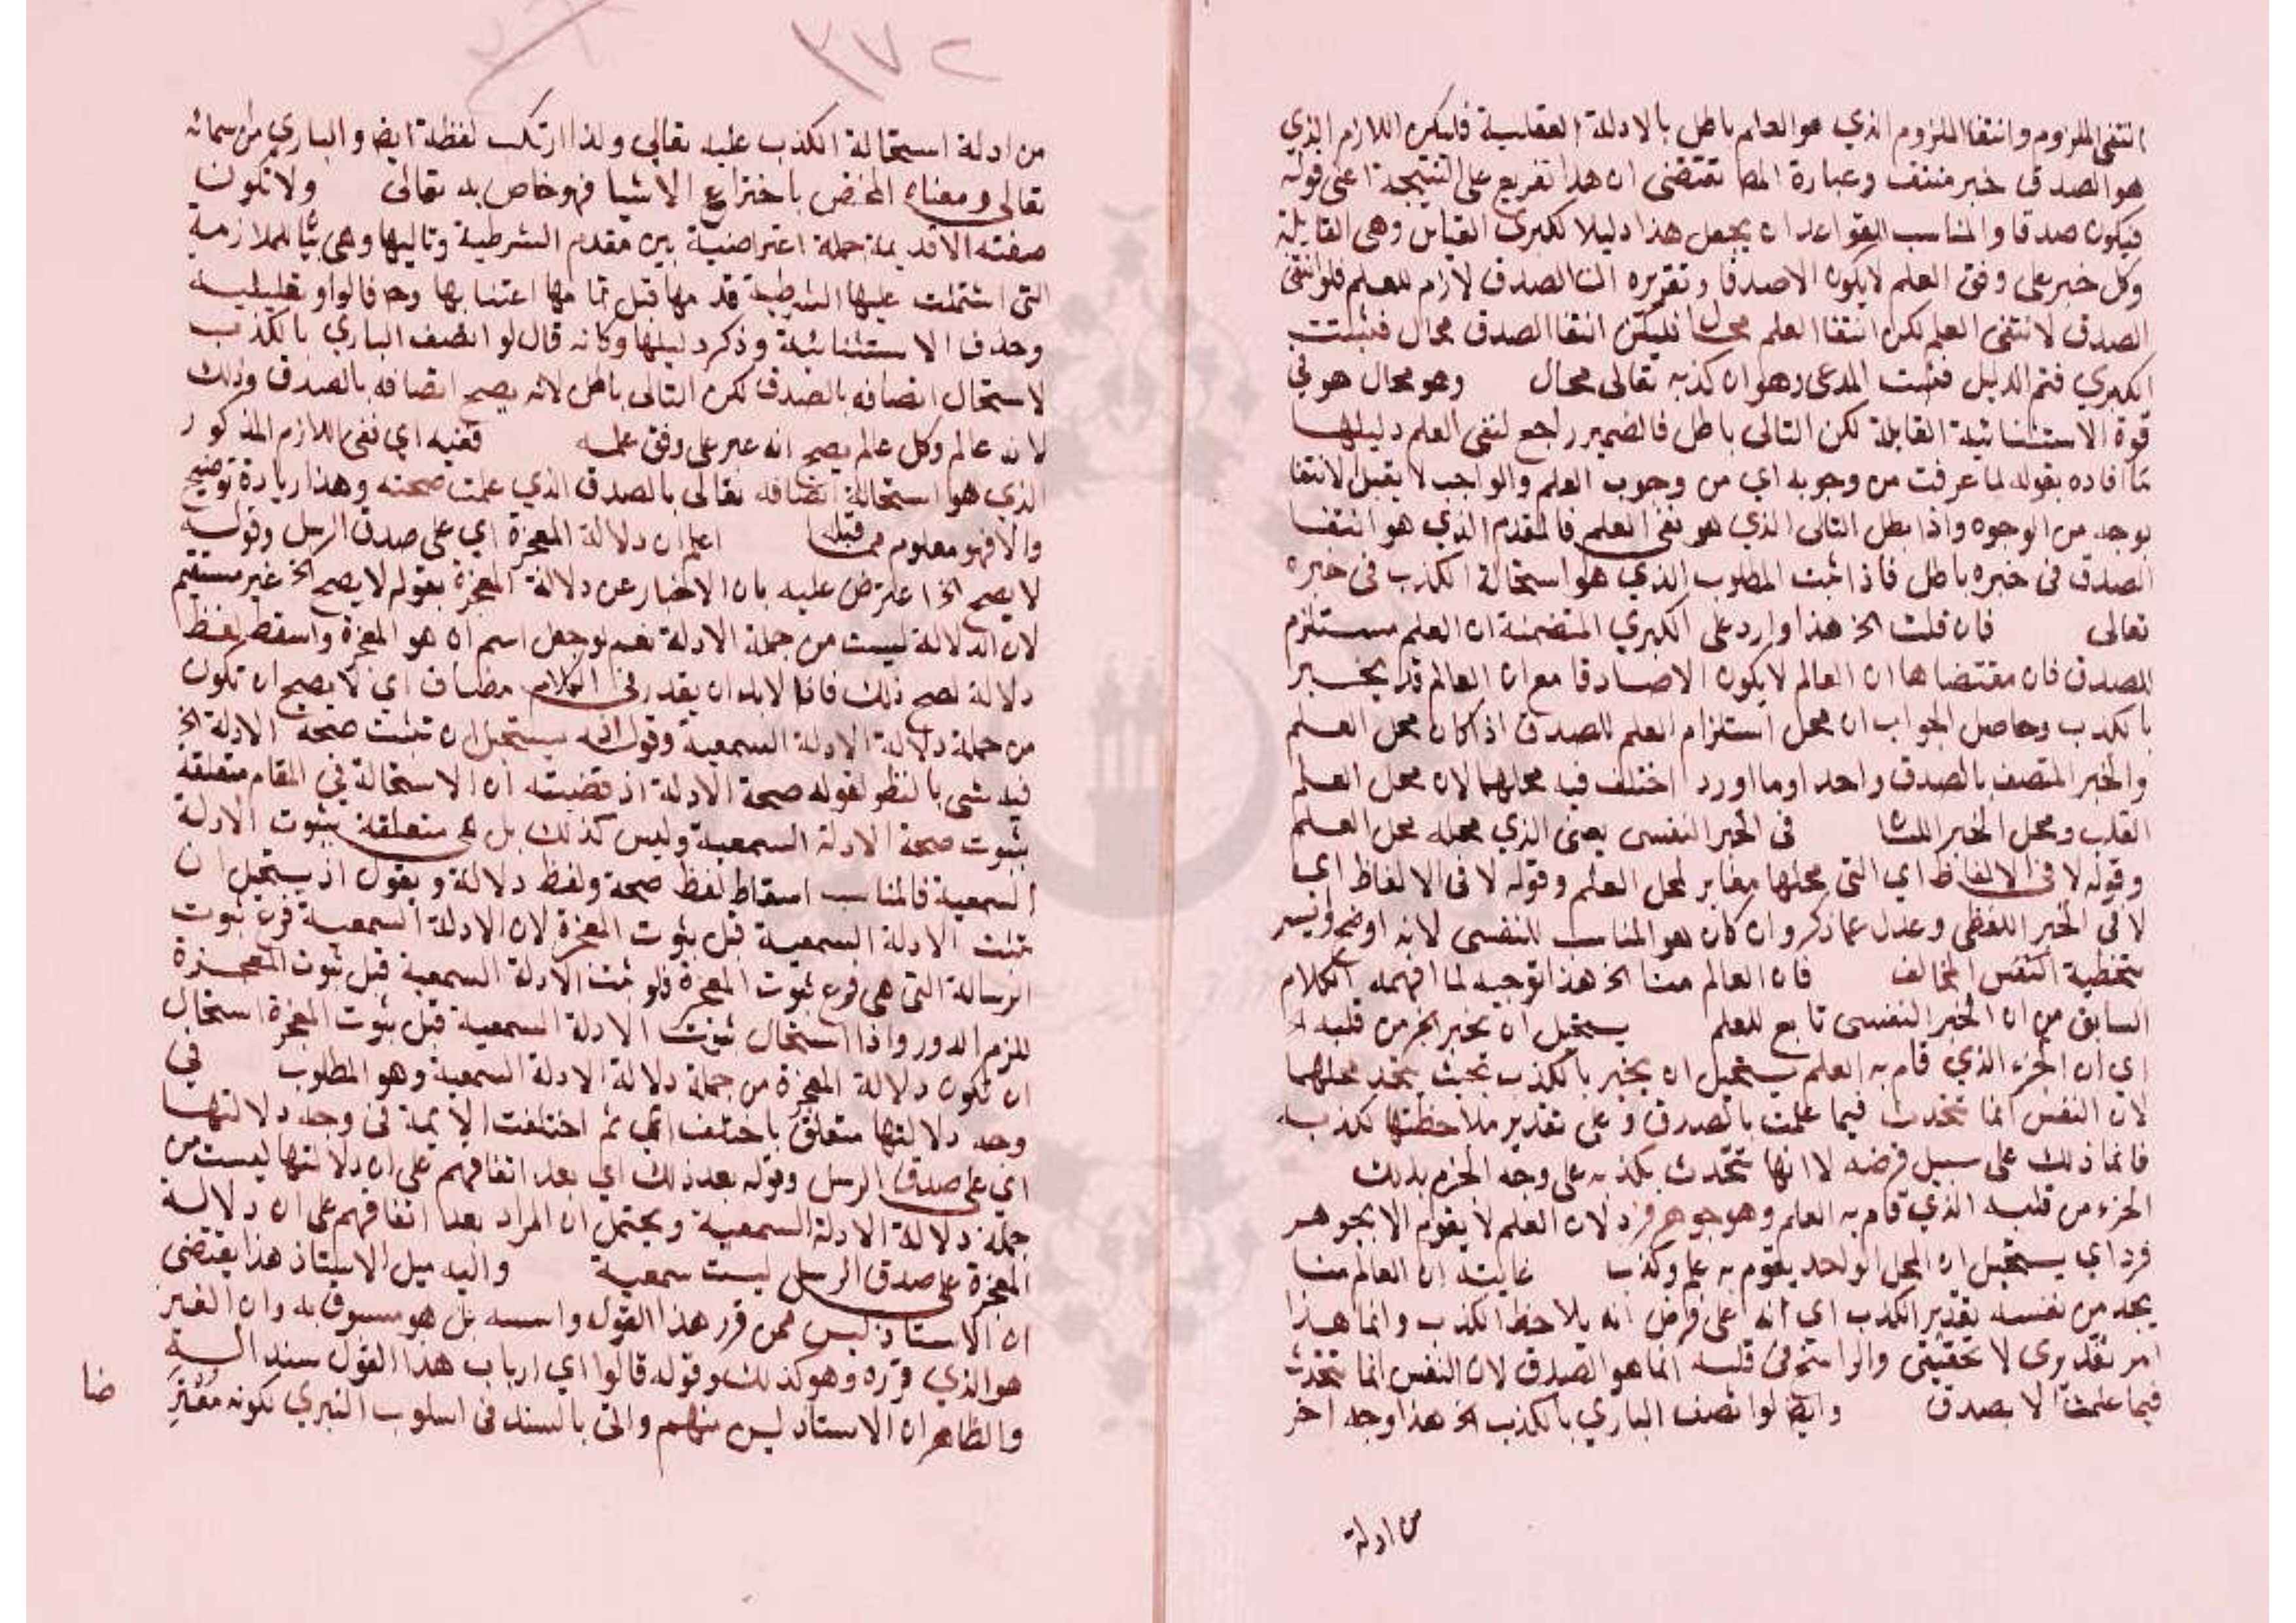 انتفى الملزوم وانتفا الملزوم الذي هو العلم باطل بالادلة العقلية فليكن اللازم الذي
هو الصدق خبر منتف وعبارة المص تقتضى ان هذا تفريع على النتيجة اعنى قوله
فيكون صدقا والمناسب للقواعد ان يجعل هذا دليلا لكبرى القياس وهى القايلة
وكل خبر على وفق العلم لايكون الاصدقا وتقريره ان الصدق لازم للعلم فلو انتفى
الصدق لانتفى العلم لكن انتفا العلم محال فليكن انتفا الصدق محال فثبتت
الكبرى فتم الدليل فثبت المدعى وهو ان كذبه تعالى محال وهو محال هو فى
قوة الاستثنائية القايلة لكن التالى باطل فالضمير راجع لنفى العلم دليلها
ما افاده بقوله لما عرفت من وجوبه اي من وجوب العلم والواجب لا يقبل لانتفا
بوجه من الوجوه واذا بطل التالى الذي هو نفى العلم فالمقدم الذي هو انتفا
الصدق فى خبره باطل فاذا ثبت المطلوب الذي هو استحالة الكذب فى خبره
تعالى فان قلت الخ هذا وارد على الكبري المتضمنة ان العلم مستلزم
للصدق فان مقتضاها ان العالم لا يكون الاصادقا مع ان العالم قد يخبر
بالكذب وحاصل الجواب ان محل استلزام العلم للصدق اذا كان محل العلم
والخبر المتصف بالصدق واحد اوما اورد اختلف فيه محلهما لان محل العلم
القلب ومحل الخبر اللسا فى الخبر النفسى يعنى الذي محله محل العلم
وقوله لا فى الالفاظ اي التى محلها مغاير لمحل العلم وقوله لا فى الالفاظ اي
لا فى الخبر اللفظى وعدل عما ذكر وان كان هو المناسب للنفسى لانه اوضح
المخالف فان العالم منا الخ هذا توجيه لما افهمه الكلام
السابق من ان الخبر النفسى تابع للعلم يستحيل ان يخبر بجزء من قلبه الخ
اي ان الجزء الذي قام به العلم يستحيل ان يخبر بالكذب بحيث يتحد محلهما
لان النفس انما تتحدث فيما علمت بالصدق وعلى تقدير ملاحظتها لكذب
فانما ذلك على سبيل فرضه لا انها تتحدث بكذبه على وجه الجزم بذلك
الجزء من قلبه الذي قام به العلم وهو جوهر فرد لان العلم لا يقوم الا بجوهر
فرد اي يستحيل ان المحل الواحد يقوم به علم وكذب غايته ان العالم منا
يجد من نفسه تقدير الكذب اي انه على فرض انه يلاحظ الكذب وانما هذا
امر تقديرى لا تحقيقى والراسخ فى قلبه انما هو الصدق لان النفس انما تتحدث
فيما علمت الا بصدق وايضا لو اتصف الباري بالكذب الخ هذا وجه اخر
من ادلة
٣٧٢
من ادلة استحالة الكذب عليه تعالى ولذا ارتكب لفظة ايض والباري من سمائه
تعالى ومعناه المختص باختراع الاشيا فهو خاص به تعالى ولا تكون
صفته الاقديمة جملة اعتراضية بين مقدم الشرطية وتاليها وهى للملازمة
التى اشتملت عليها الشرطية قدمها قبل تمامها اعتنا بها وح فالواو تعليلية
وحذف الاستثنائية وذكر دليلها وكانه قال لو اتصف الباري بالكذب
لاستحال اتصافه بالصدق لكن التالى باطل لانه يصح اتصافه بالصدق وذلك
لانه عالم وكل عالم يصح انه على وفق علمه ففيه اي نفى اللازم المذكور
الذي هو استحالة اتصافه تعالى بالصدق الذي علمت صحته وهذا زيادة توضيح
والا فهو معلوم مما قبله اعلم ان دلالة المعجزة اي على صدق الرسل وقوله
لا يصح الخ اعترض عليه بان الاخبار عن دلالة المعجزة بقوله لا يصح الخ غير مستقيم
لان الدلالة ليست من جملة الادلة نعم لو جعل اسم ان هو المعجزة واسقط لفظ
دلالة لصح ذلك فاذا لا بد ان يقدر فى الكلام مضاف اي لا يصح ان تكون
من جملة دلالة الادلة السمعية وقوله يستحيل ان تثبت صحة الادلة الخ
فيه شى بالنظر لقوله صحة الادلة اذ قضيته ان الاستحالة فى المقام متعلقة
بثبوت صحة الادلة السمعية وليس كذلك بل هى متعلقة بثبوت الادلة
السمعية فالمناسب اسقاط لفظ صحة ولفظ دلالة ويقول اذ يستحيل ان
تثبت الادلة السمعية قبل ثبوت المعجزة لان الادلة السمعية فرع ثبوت
الرسالة التى هى فرع ثبوت المعجزة فلو ثبت الادلة السمعية قبل ثبوت المعجزة
للزم الدور واذا استحال ثبوت الادلة السمعية قبل ثبوت المعجزة استحال
ان تكون دلالة المعجزة من جملة دلالة الادلة السمعية وهو المطلوب فى
وجه دلالتها متعلق باختلف اي ثم اختلفت الايمة فى وجه دلالتها
اي على صدق الرسل وقوله بعد ذلك اي بعد اتفاقهم على ان دلالتها ليست من
جملة دلالة الادلة السمعية ويحتمل ان المراد بعد اتفاقهم على ان دلالة
المعجزة على صدق الرسل ليست سمعية واليه ميل الاستاذ هذا يقتضى
ان الاستاذ ليس ممن قرر هذا القول واسسه بل هو مسبوق به وان الغير
هو الذي قرره وهو كذلك وقوله قالوا اي ارباب هذا القول سند السنة
والظاهر ان الاستاذ ليس منهم واتى بالسند فى اسلوب التبري لكونه
ضا